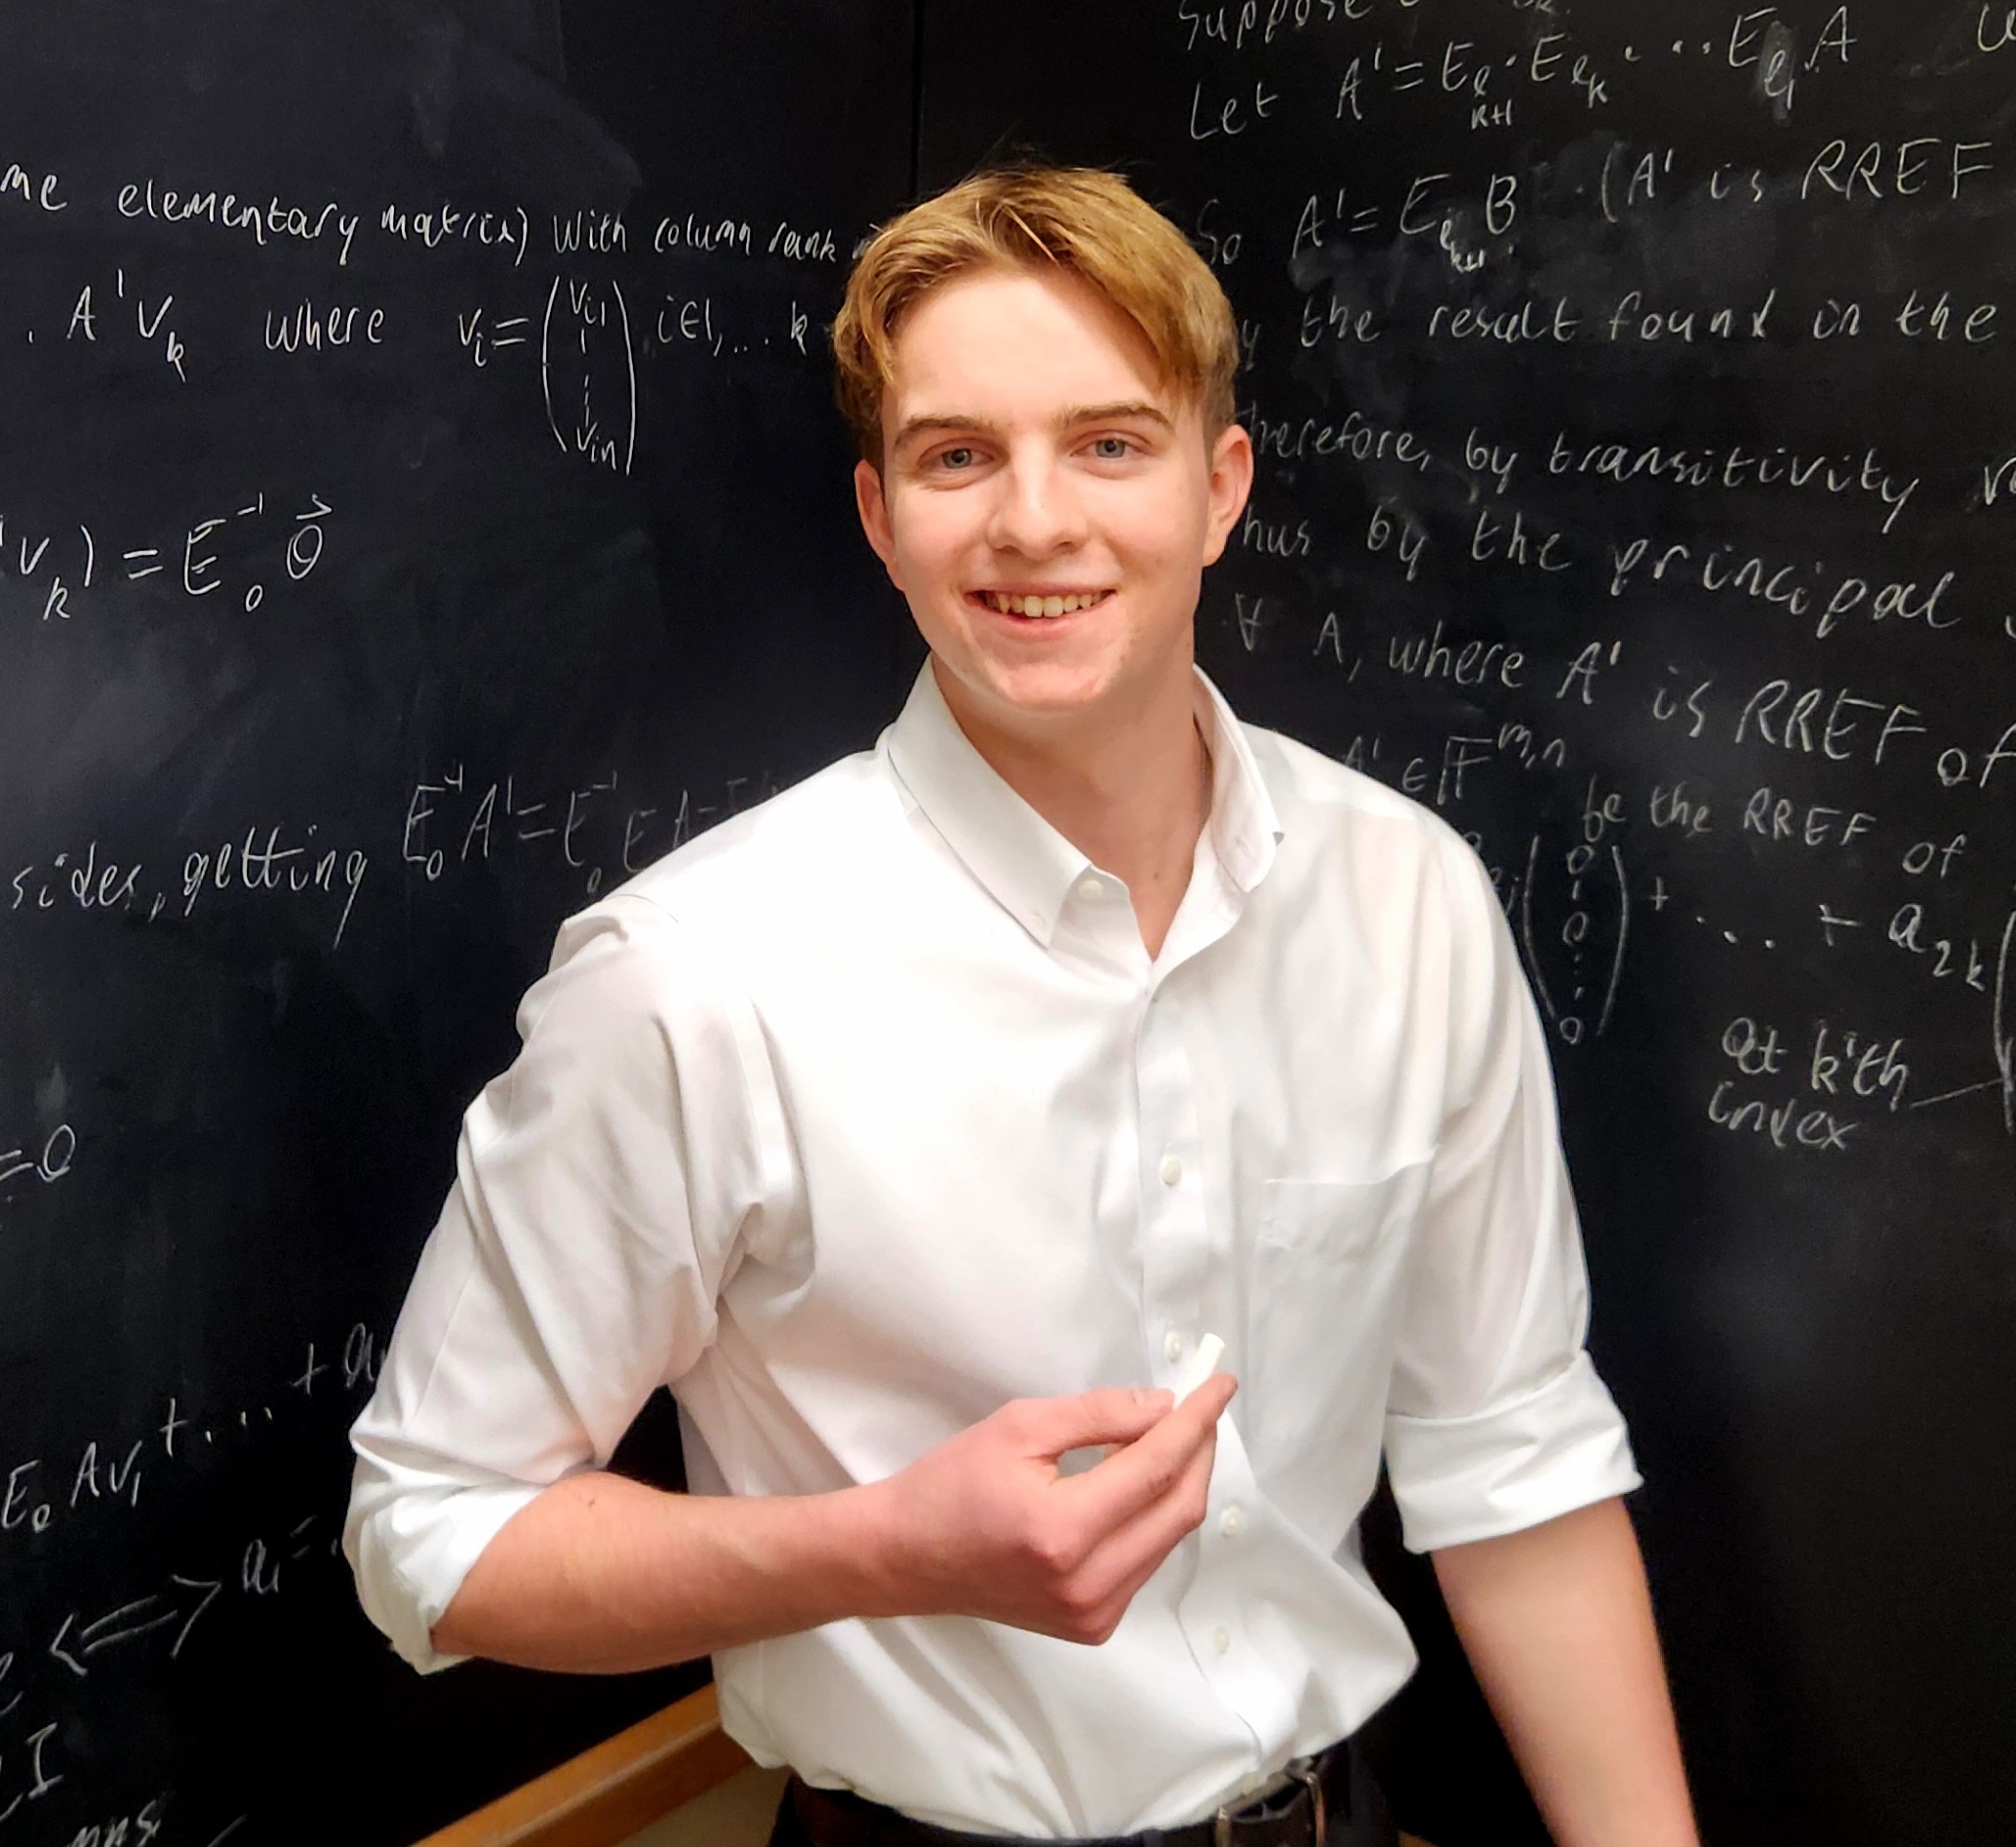 elementary matrix) with column rank
. A'v_k where v_i = (v_i1 ⋮ v_in) i∈1,... k
v_k) = E_0^-1 0⃗
sides, getting E_0^-1 A' = E_0^-1 E A
=0
+ a
E_0 Av_1 + ...
<=> a_1 =
I
Suppose
Let A' = E_e_k+1 · E_e_k · ... E_e_1 A
So A' = E_e_k+1 B (A' is RREF
the result found in the
Therefore, by transitivity
Thus by the principal
∀ A, where A' is RREF of
A' ∈ F^m,n
be the RREF of
(0 1 0 ⋮ 0) + ... + a_2k
at k'th
index